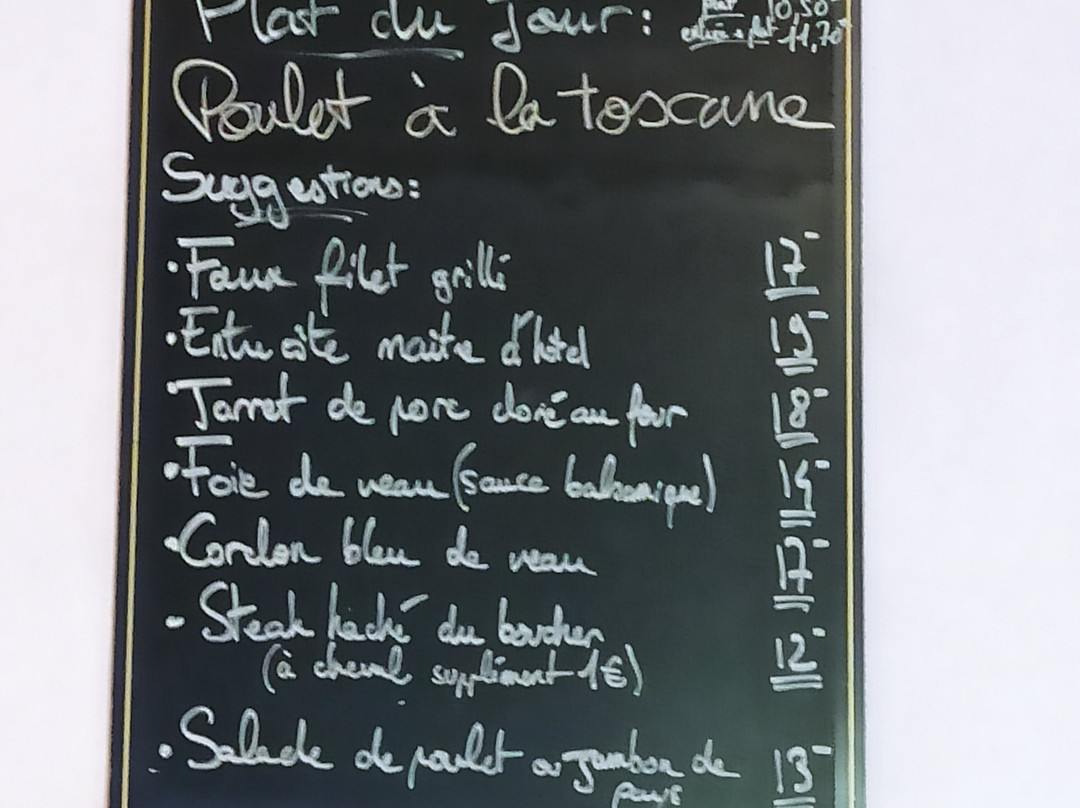 Plat du Jour: plat 10,50
entrée + plat 11,70
Poulet à la toscane
Suggestions:
• Faux filet grillé 17
• Entrecôte maître d'hôtel 19
• Jarret de porc doré au four 18
• Foie de veau (sauce balsamique)
• Cordon bleu de veau 17
• Steak haché du boucher 12
(à cheval supplément 1€)
• Salade de poulet ou Jambon de 13
pays